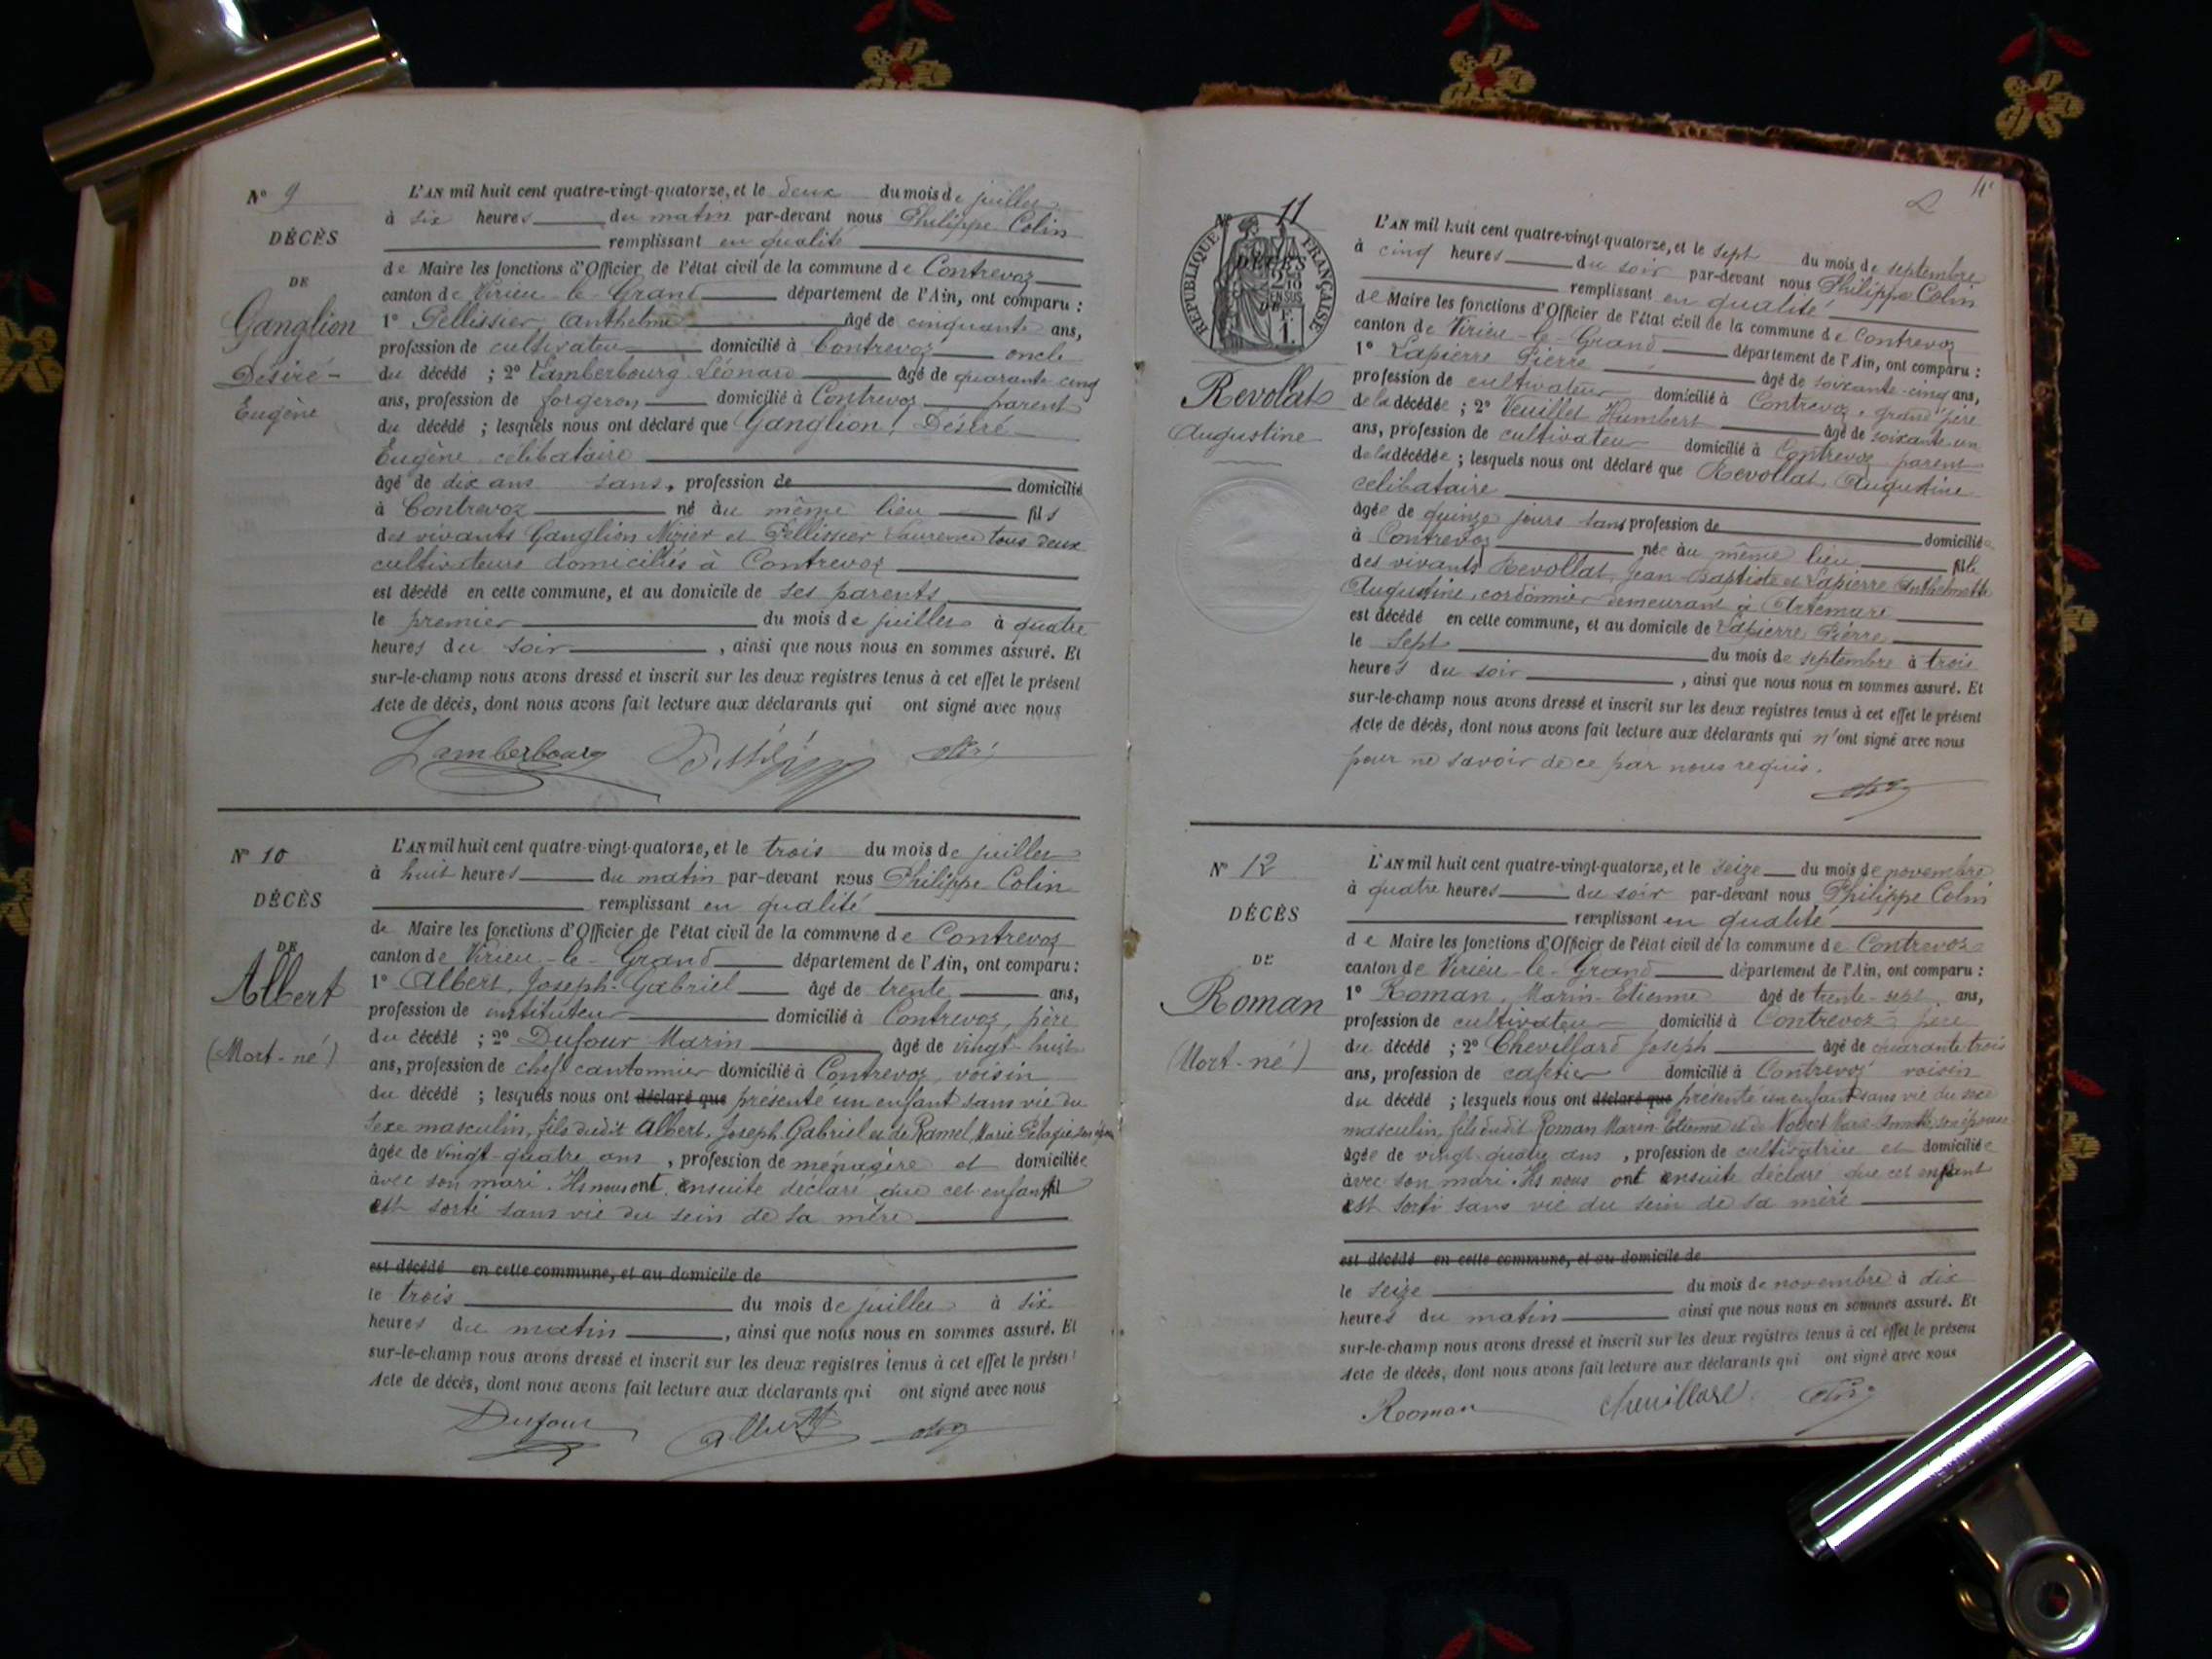 N° 9
DÉCÈS
DE
Ganglion
Désiré-
Eugène
L'AN mil huit cent quatre-vingt-quatorze, et le deux du mois de juillet
à six heures du matin par-devant nous Philippe Colin
remplissant en qualité
de Maire les fonctions d'Officier de l'état civil de la commune de Contrevoz
canton de Virieu-le-Grand département de l'Ain, ont comparu :
1° Pellissier Anthelme âgé de cinquante ans,
profession de cultivateur domicilié à Contrevoz oncle
du décédé ; 2° Lamberbourg Léonard âgé de quarante cinq
ans, profession de forgeron domicilié à Contrevoz parent
du décédé ; lesquels nous ont déclaré que Ganglion, Désiré-
Eugène célibataire
âgé de dix ans sans, profession de domicilié
à Contrevoz né au même lieu fils
des vivants Ganglion Nizier et Pellissier Laurence tous deux
cultivateurs domiciliés à Contrevoz
est décédé en cette commune, et au domicile de ses parents
le premier du mois de juillet à quatre
heures du soir , ainsi que nous nous en sommes assuré. Et
sur-le-champ nous avons dressé et inscrit sur les deux registres tenus à cet effet le présent
Acte de décès, dont nous avons fait lecture aux déclarants qui ont signé avec nous
Lamberbourg
N° 10
DÉCÈS
DE
Albert
(Mort-né)
L'AN mil huit cent quatre-vingt-quatorze, et le trois du mois de juillet
à huit heures du matin par-devant nous Philippe Colin
remplissant en qualité
de Maire les fonctions d'Officier de l'état civil de la commune de Contrevoz
canton de Virieu-le-Grand département de l'Ain, ont comparu :
1° Albert, Joseph-Gabriel âgé de trente ans,
profession de instituteur domicilié à Contrevoz, père
du décédé ; 2° Dufour Marin âgé de vingt-huit
ans, profession de chef cantonnier domicilié à Contrevoz, voisin
du décédé ; lesquels nous ont déclaré que présenté un enfant sans vie du
sexe masculin, fils dudit Albert, Joseph Gabriel et de Ramel, Marie Pélagie, son épouse
âgée de vingt-quatre ans , profession de ménagère et domiciliée
avec son mari. Ils nous ont ensuite déclaré que cet enfant
est sorti sans vie du sein de sa mère
est décédé en cette commune, et au domicile de
le trois du mois de juillet à six
heures du matin , ainsi que nous nous en sommes assuré. Et
sur-le-champ nous avons dressé et inscrit sur les deux registres tenus à cet effet le présent
Acte de décès, dont nous avons fait lecture aux déclarants qui ont signé avec nous
Dufour Albert
N° 11
RÉPUBLIQUE FRANÇAISE
DÉCÈS
Revollat
Augustine
L'AN mil huit cent quatre-vingt-quatorze, et le sept du mois de septembre
à cinq heures du soir par-devant nous Philippe Colin
remplissant en qualité
de Maire les fonctions d'Officier de l'état civil de la commune de Contrevoz
canton de Virieu-le-Grand département de l'Ain, ont comparu :
1° Lapierre Pierre âgé de soixante-cinq ans,
profession de cultivateur domicilié à Contrevoz, grand père
de la décédée ; 2° Veuillet Humbert âgé de soixante un
ans, profession de cultivateur domicilié à Contrevoz parent
de la décédée ; lesquels nous ont déclaré que Revollat, Augustine
célibataire
âgée de quinze jours sans profession de domiciliée
à Contrevoz née au même lieu fille
des vivants Revollat, Jean-Baptiste et Lapierre Anthelmette
Augustine, cordonnier demeurant à Artemare
est décédé en cette commune, et au domicile de Lapierre Pierre
le sept du mois de septembre à trois
heures du soir , ainsi que nous nous en sommes assuré. Et
sur-le-champ nous avons dressé et inscrit sur les deux registres tenus à cet effet le présent
Acte de décès, dont nous avons fait lecture aux déclarants qui n'ont signé avec nous
pour ne savoir de ce par nous requis.
N° 12
DÉCÈS
DE
Roman
(Mort-né)
L'AN mil huit cent quatre-vingt-quatorze, et le seize du mois de novembre
à quatre heures du soir par-devant nous Philippe Colin
remplissant en qualité
de Maire les fonctions d'Officier de l'état civil de la commune de Contrevoz
canton de Virieu-le-Grand département de l'Ain, ont comparu :
1° Roman, Marin-Etienne âgé de trente-sept ans,
profession de cultivateur domicilié à Contrevoz père
du décédé ; 2° Chevillard Joseph âgé de quarante trois
ans, profession de cafetier domicilié à Contrevoz voisin
du décédé ; lesquels nous ont déclaré que présenté un enfant sans vie du sexe
masculin, fils dudit Roman Marin-Etienne et de Marie son épouse
âgée de vingt-quatre ans , profession de cultivatrice et domiciliée
avec son mari. Ils nous ont ensuite déclaré que cet enfant
est sorti sans vie du sein de sa mère
est décédé en cette commune, et au domicile de
le seize du mois de novembre à dix
heures du matin ainsi que nous nous en sommes assuré. Et
sur-le-champ nous avons dressé et inscrit sur les deux registres tenus à cet effet le présent
Acte de décès, dont nous avons fait lecture aux déclarants qui ont signé avec nous
Roman Chevillard